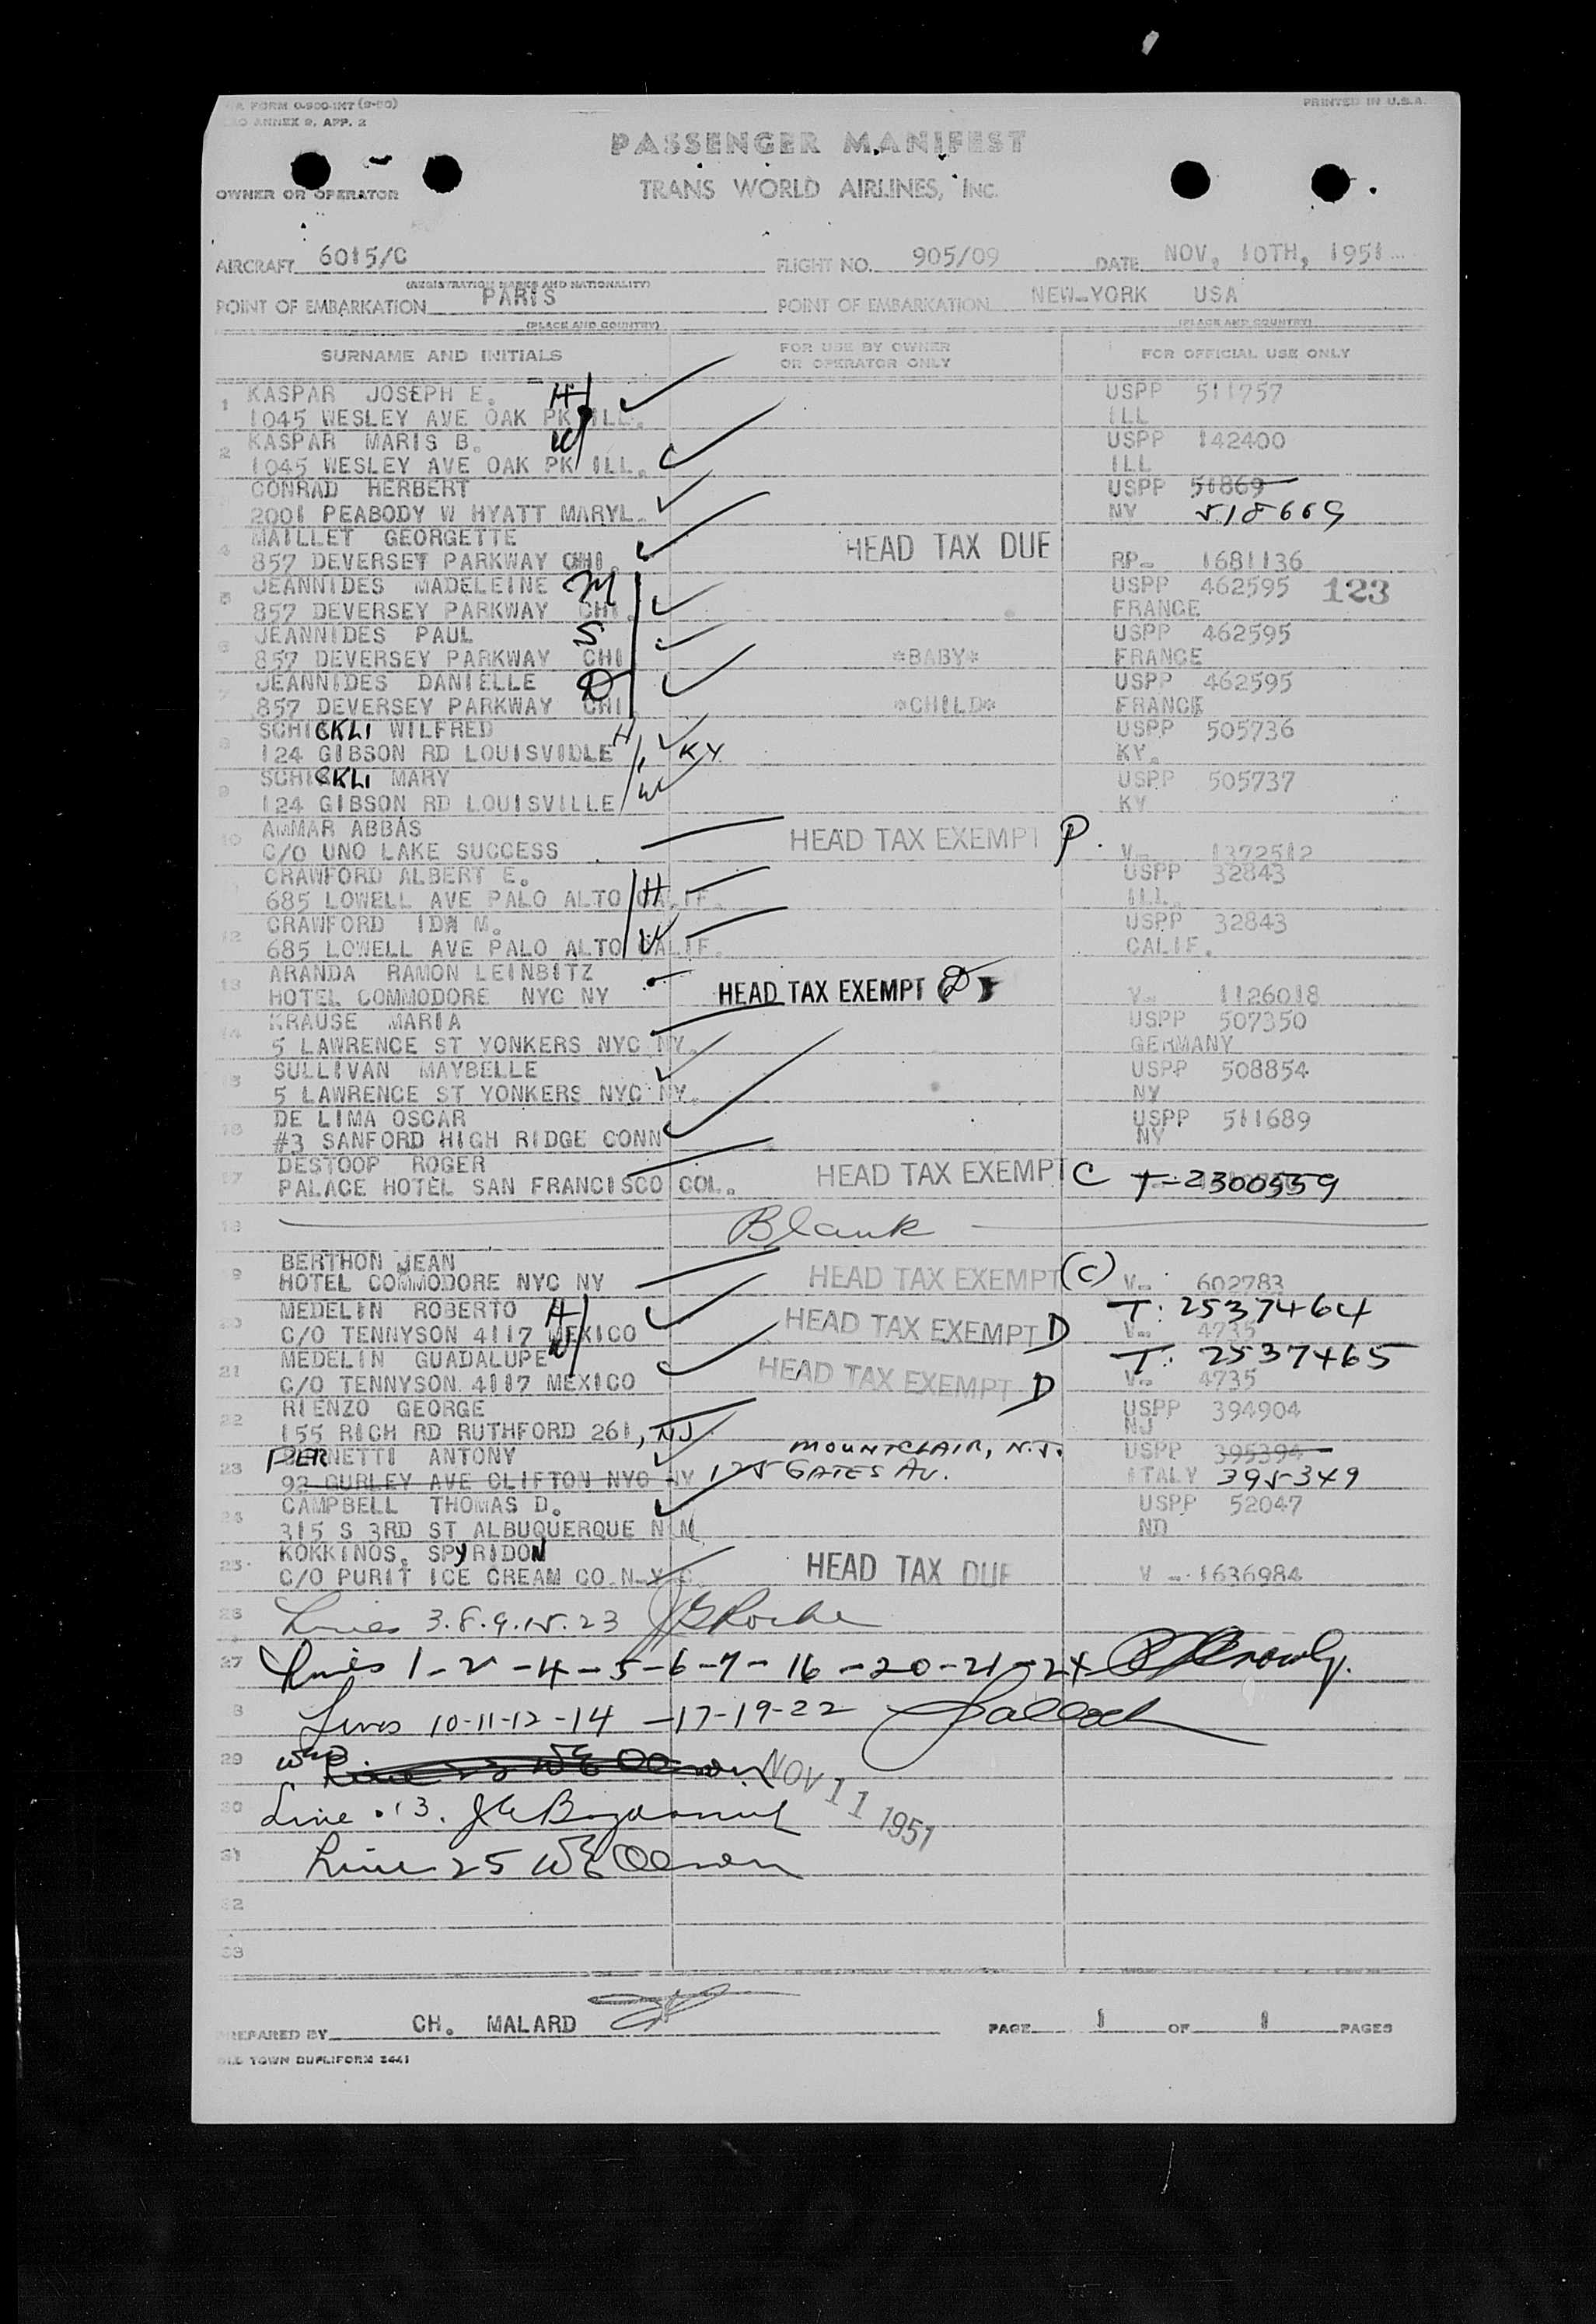 FORM 0-900-INT (9-50)
PRINTED IN U.S.A.
ANNEX 9, APP. 2
PASSENGER MANIFEST
OWNER OR OPERATOR TRANS WORLD AIRLINES, INC.
AIRCRAFT 6015/C FLIGHT NO. 905/09 DATE NOV, 10TH, 1951
(REGISTRATION MARKS AND NATIONALITY)
POINT OF EMBARKATION PARIS POINT OF EMBARKATION NEW-YORK USA
(PLACE AND COUNTRY) (PLACE AND COUNTRY)
SURNAME AND INITIALS FOR USE BY OWNER OR OPERATOR ONLY FOR OFFICIAL USE ONLY
1 KASPAR JOSEPH E. H USPP 511757
1045 WESLEY AVE OAK PK ILL. ILL
2 KASPAR MARIS B. W USPP 142400
1045 WESLEY AVE OAK PK ILL. ILL
CONRAD HERBERT USPP 51869
2001 PEABODY W HYATT MARYL. NY 518669
4 MAILLET GEORGETTE HEAD TAX DUE
857 DEVERSET PARKWAY CHI. RP- 1681136
5 JEANNIDES MADELEINE M USPP 462595 123
857 DEVERSEY PARKWAY CHI FRANCE
6 JEANNIDES PAUL S USPP 462595
857 DEVERSEY PARKWAY CHI *BABY* FRANCE
7 JEANNIDES DANIELLE D USPP 462595
857 DEVERSEY PARKWAY CHI *CHILD* FRANCE
8 SCHICKLI WILFRED H USPP 505736
124 GIBSON RD LOUISVIDLE KY KY.
9 SCHICKLI MARY USPP 505737
124 GIBSON RD LOUISVILLE W KY
10 AMMAR ABBAS HEAD TAX EXEMPT P.
C/O UNO LAKE SUCCESS V- 1372512
CRAWFORD ALBERT E. H USPP 32843
685 LOWELL AVE PALO ALTO CALIF. ILL.
12 CRAWFORD IDA M. W USPP 32843
685 LOWELL AVE PALO ALTO CALIF. CALIF.
13 ARANDA RAMON LEINBITZ HEAD TAX EXEMPT D
HOTEL COMMODORE NYC NY V- 1126018
14 KRAUSE MARIA USPP 507350
5 LAWRENCE ST YONKERS NYC NY. GERMANY
15 SULLIVAN MAYBELLE USPP 508854
5 LAWRENCE ST YONKERS NYC NY. NY
16 DE LIMA OSCAR USPP 511689
#3 SANFORD HIGH RIDGE CONN NY
17 DESTOOP ROGER HEAD TAX EXEMPT C T-2300559
PALACE HOTEL SAN FRANCISCO COL.
18 Blank
9 BERTHON JEAN HEAD TAX EXEMPT (C)
HOTEL COMMODORE NYC NY V- 602783
20 MEDELIN ROBERTO H HEAD TAX EXEMPT D T: 2537464
C/O TENNYSON 4117 MEXICO V- 4735
21 MEDELIN GUADALUPE W HEAD TAX EXEMPT D T: 2537465
C/O TENNYSON 4117 MEXICO V- 4735
22 RIENZO GEORGE USPP 394904
155 RICH RD RUTHFORD 261, NJ NJ
23 PERNETTI ANTONY MOUNTCLAIR, N.J. USPP 395394
92 GURLEY AVE CLIFTON NYC NY 125 GATES AV. ITALY 395349
24 CAMPBELL THOMAS D. USPP 52047
315 S 3RD ST ALBUQUERQUE N M ND
25 KOKKINOS, SPYRIDON HEAD TAX DUE
C/O PURIT ICE CREAM CO N.Y.C. V - 1636984
26 Lines 3.8.9.15.23
27 Lines 1-2-4-5-6-7-16-20-21-24
8 Lines 10-11-12-14-17-19-22
29 NOV 11 1951
30 Line 13.
31 Line 25
32
33
PREPARED BY CH. MALARD PAGE 1 OF 1 PAGES
OLD TOWN DUPLIFORM 2441